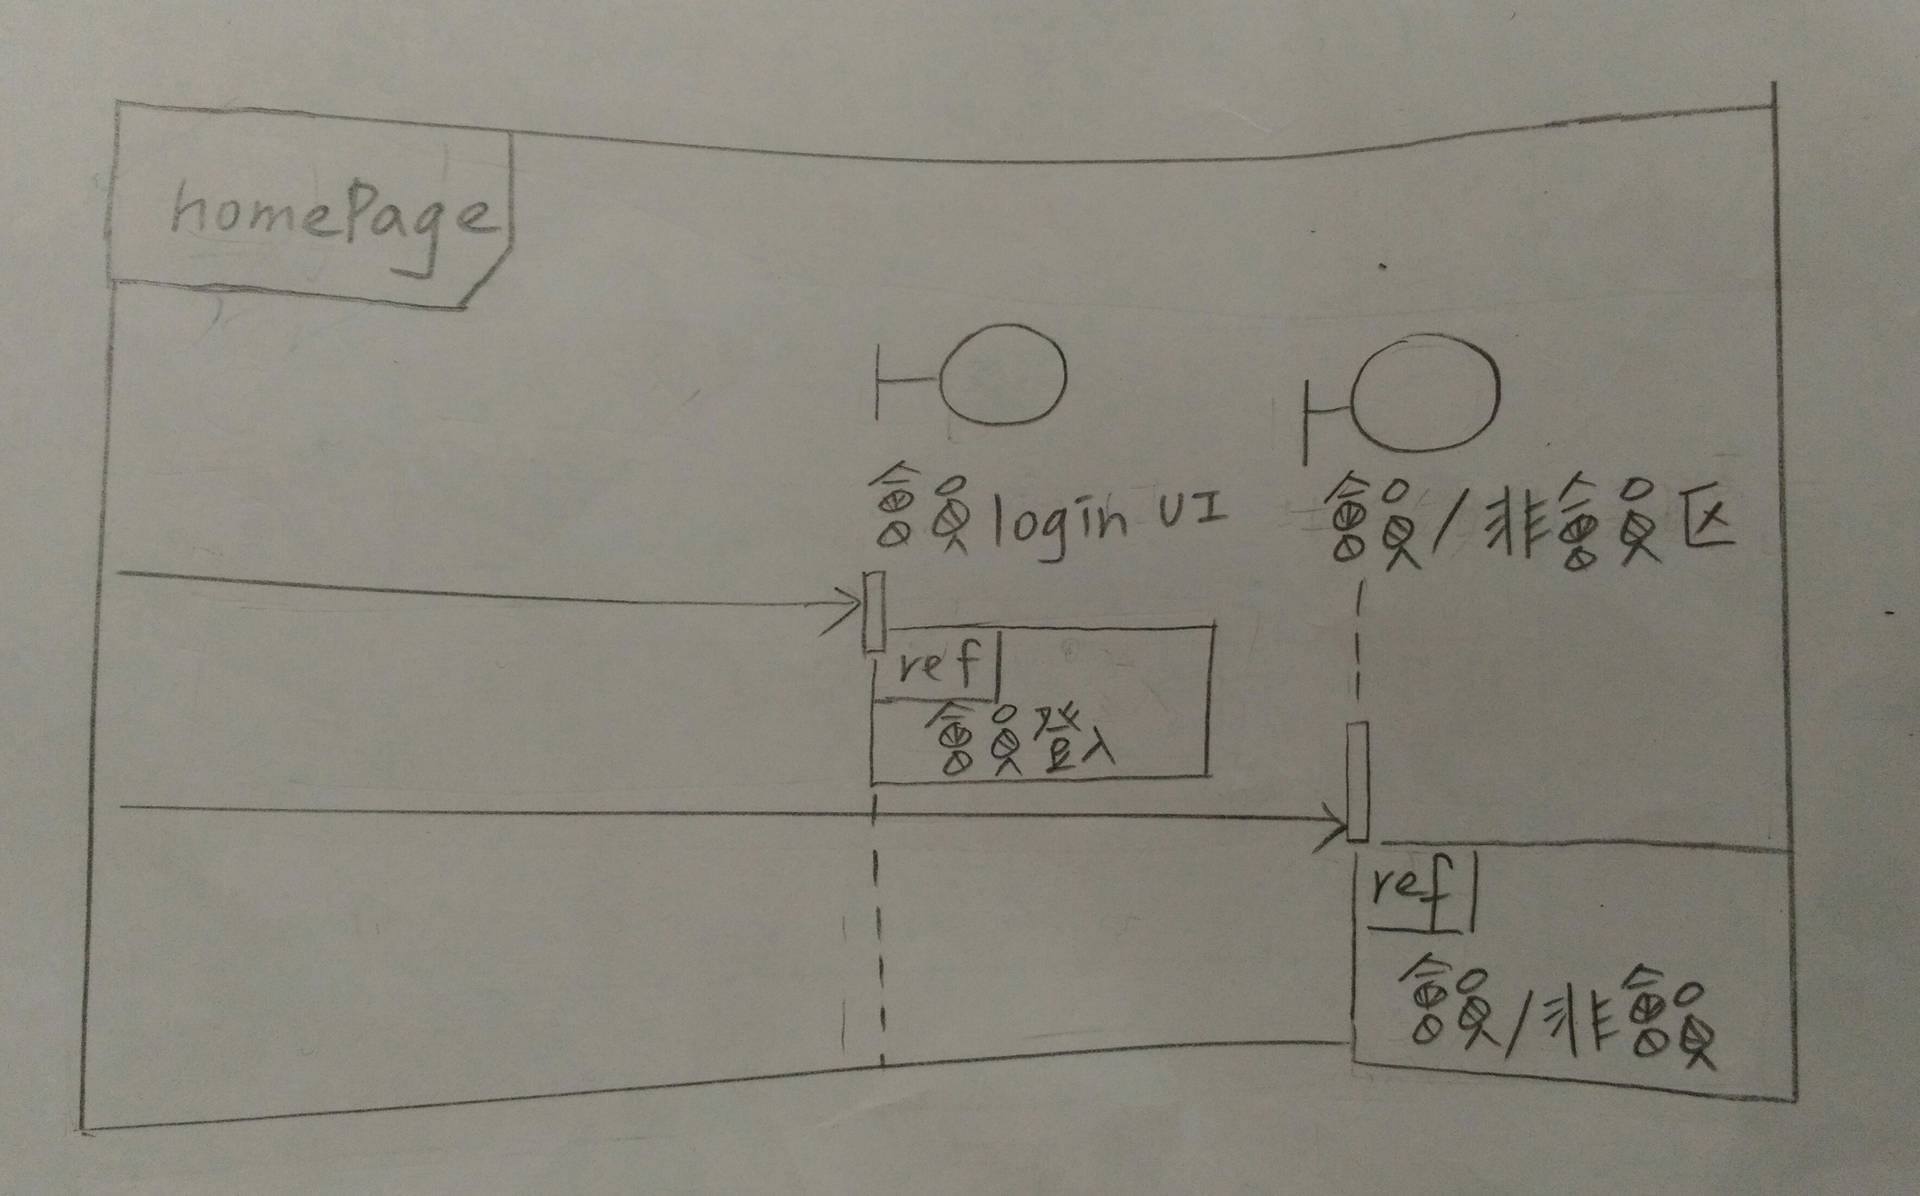 homePage
會員login UI
會員/非會員区
ref
會員登入
ref
會員/非會員